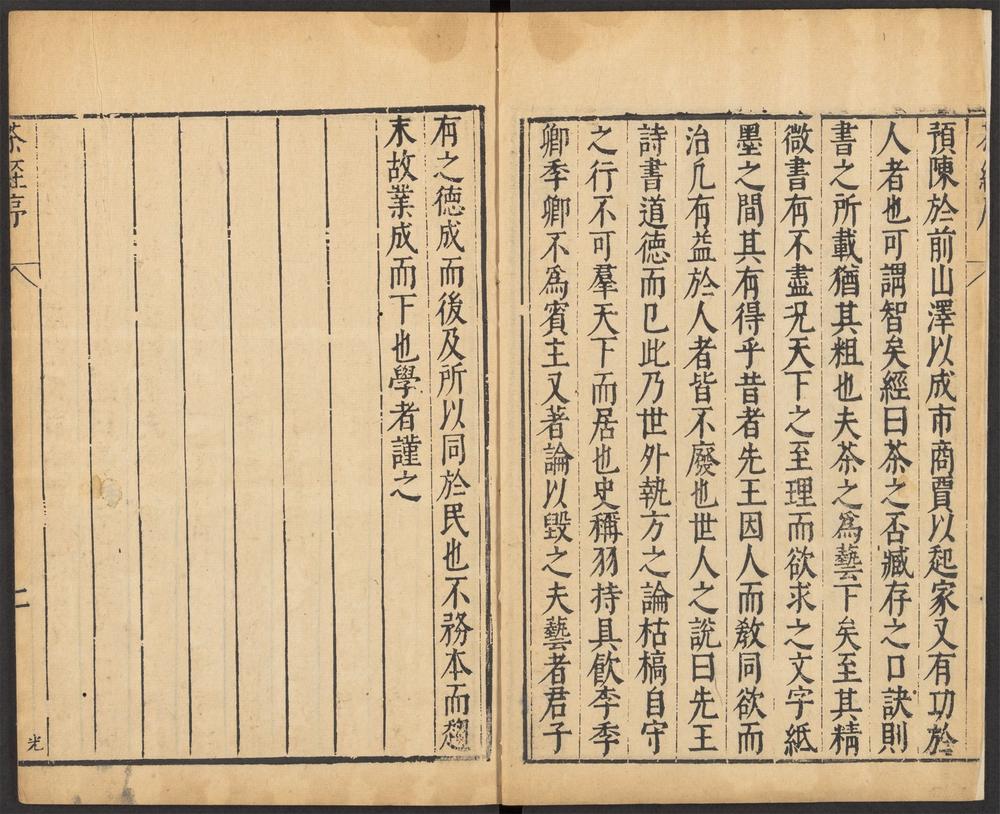 預陳於前山澤以成市商賈以起家又有功於
人者也可謂智矣經曰茶之否臧存之口訣則
書之所載猶其粗也夫茶之為藝下矣至其精
微書有不盡況天下之至理而欲求之文字紙
墨之間其有得乎昔者先王因人而教同欲而
治凡有益於人者皆不廢也世人之說曰先王
詩書道德而已此乃世外執方之論枯槁自守
之行不可羣天下而居也史稱羽持具飲李季
卿季卿不為賓主又著論以毀之夫藝者君子
有之德成而後及所以同於民也不務本而趨
末故業成而下也學者謹之
茶經序
二
光